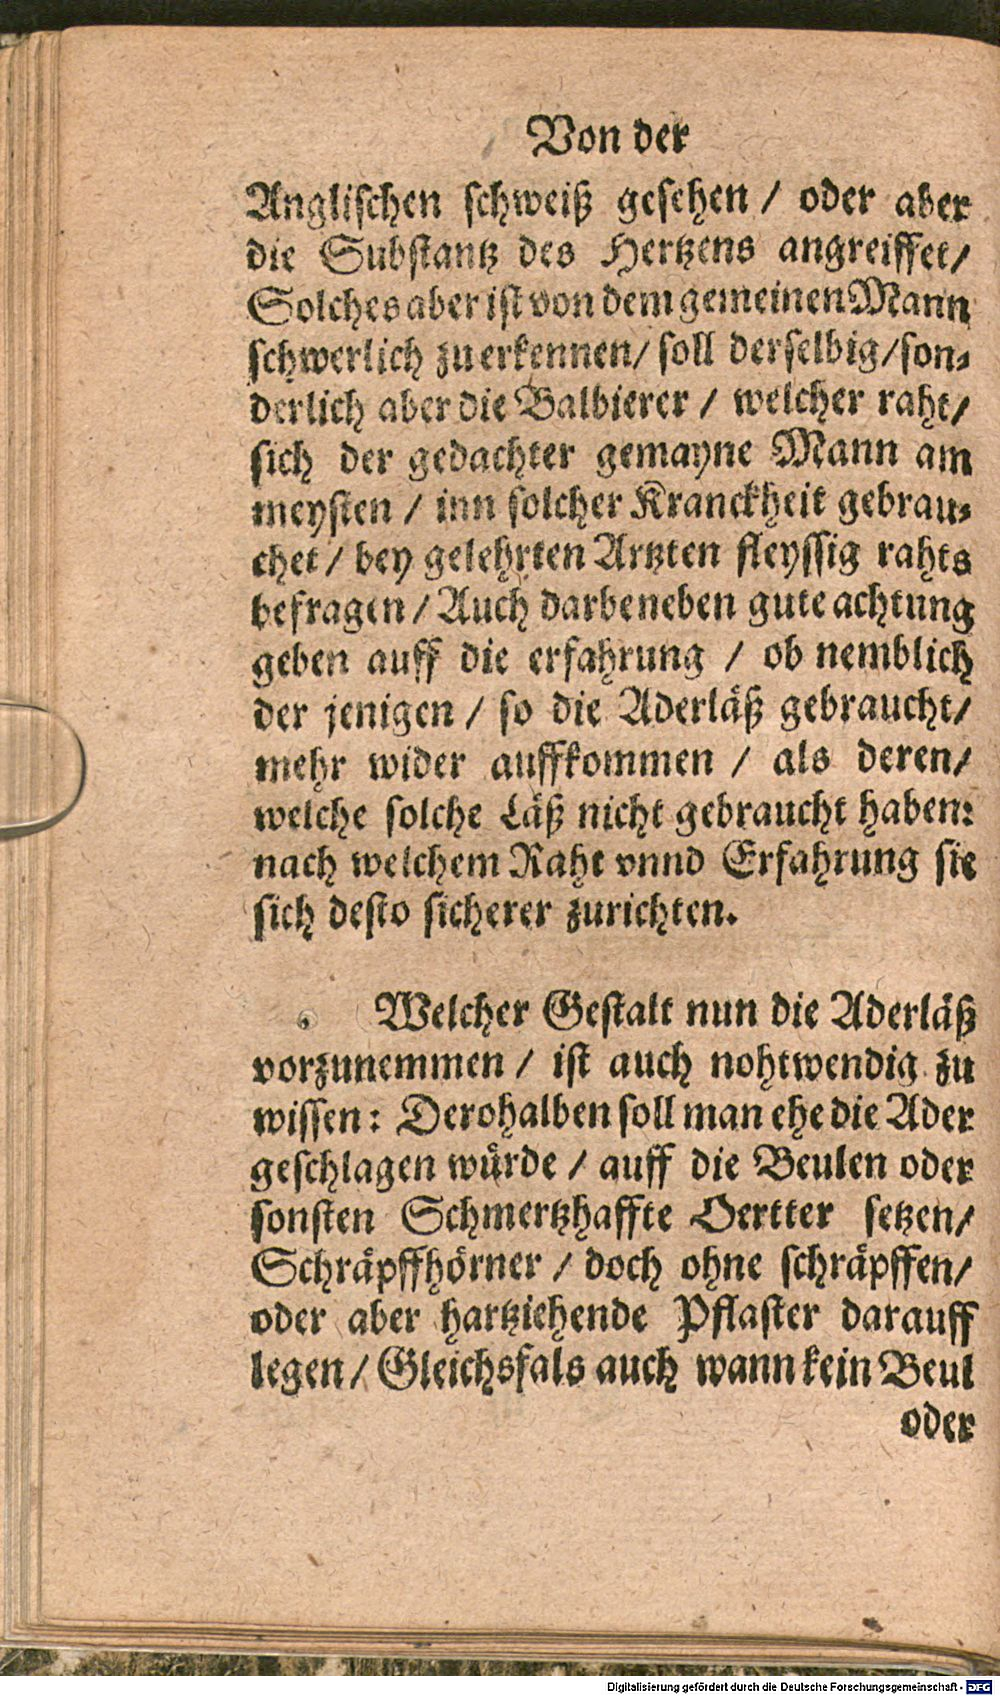 Von der
Anglischen schweiß gesehen / oder aber
die Substantz des Hertzens angreiffet/
Solches aber ist von dem gemeinen Mann
schwerlich zu erkennen/ soll derselbig/son⸗
derlich aber die Balbierer / welcher raht/
sich der gedachter gemayne Mann am
meysten / inn solcher Kranckheit gebrau⸗
chet / bey gelehrten Artzten fleyssig rahts
befragen / Auch darbeneben gute achtung
geben auff die erfahrung / ob nemblich
der jenigen / so die Aderläß gebraucht/
mehr wider auffkommen / als deren/
welche solche Läß nicht gebraucht haben:
nach welchem Raht vnnd Erfahrung sie
sich desto sicherer zurichten.
Welcher Gestalt nun die Aderläß
vorzunemmen / ist auch nohtwendig zu
wissen: Derohalben soll man ehe die Ader
geschlagen würde / auff die Beulen oder
sonsten Schmertzhaffte Oertter setzen/
Schräpffhörner / doch ohne schräpffen/
oder aber hartziehende Pflaster darauff
legen / Gleichsfals auch wann kein Beul
oder
Digitalisierung gefördert durch die Deutsche Forschungsgemeinschaft - DFG